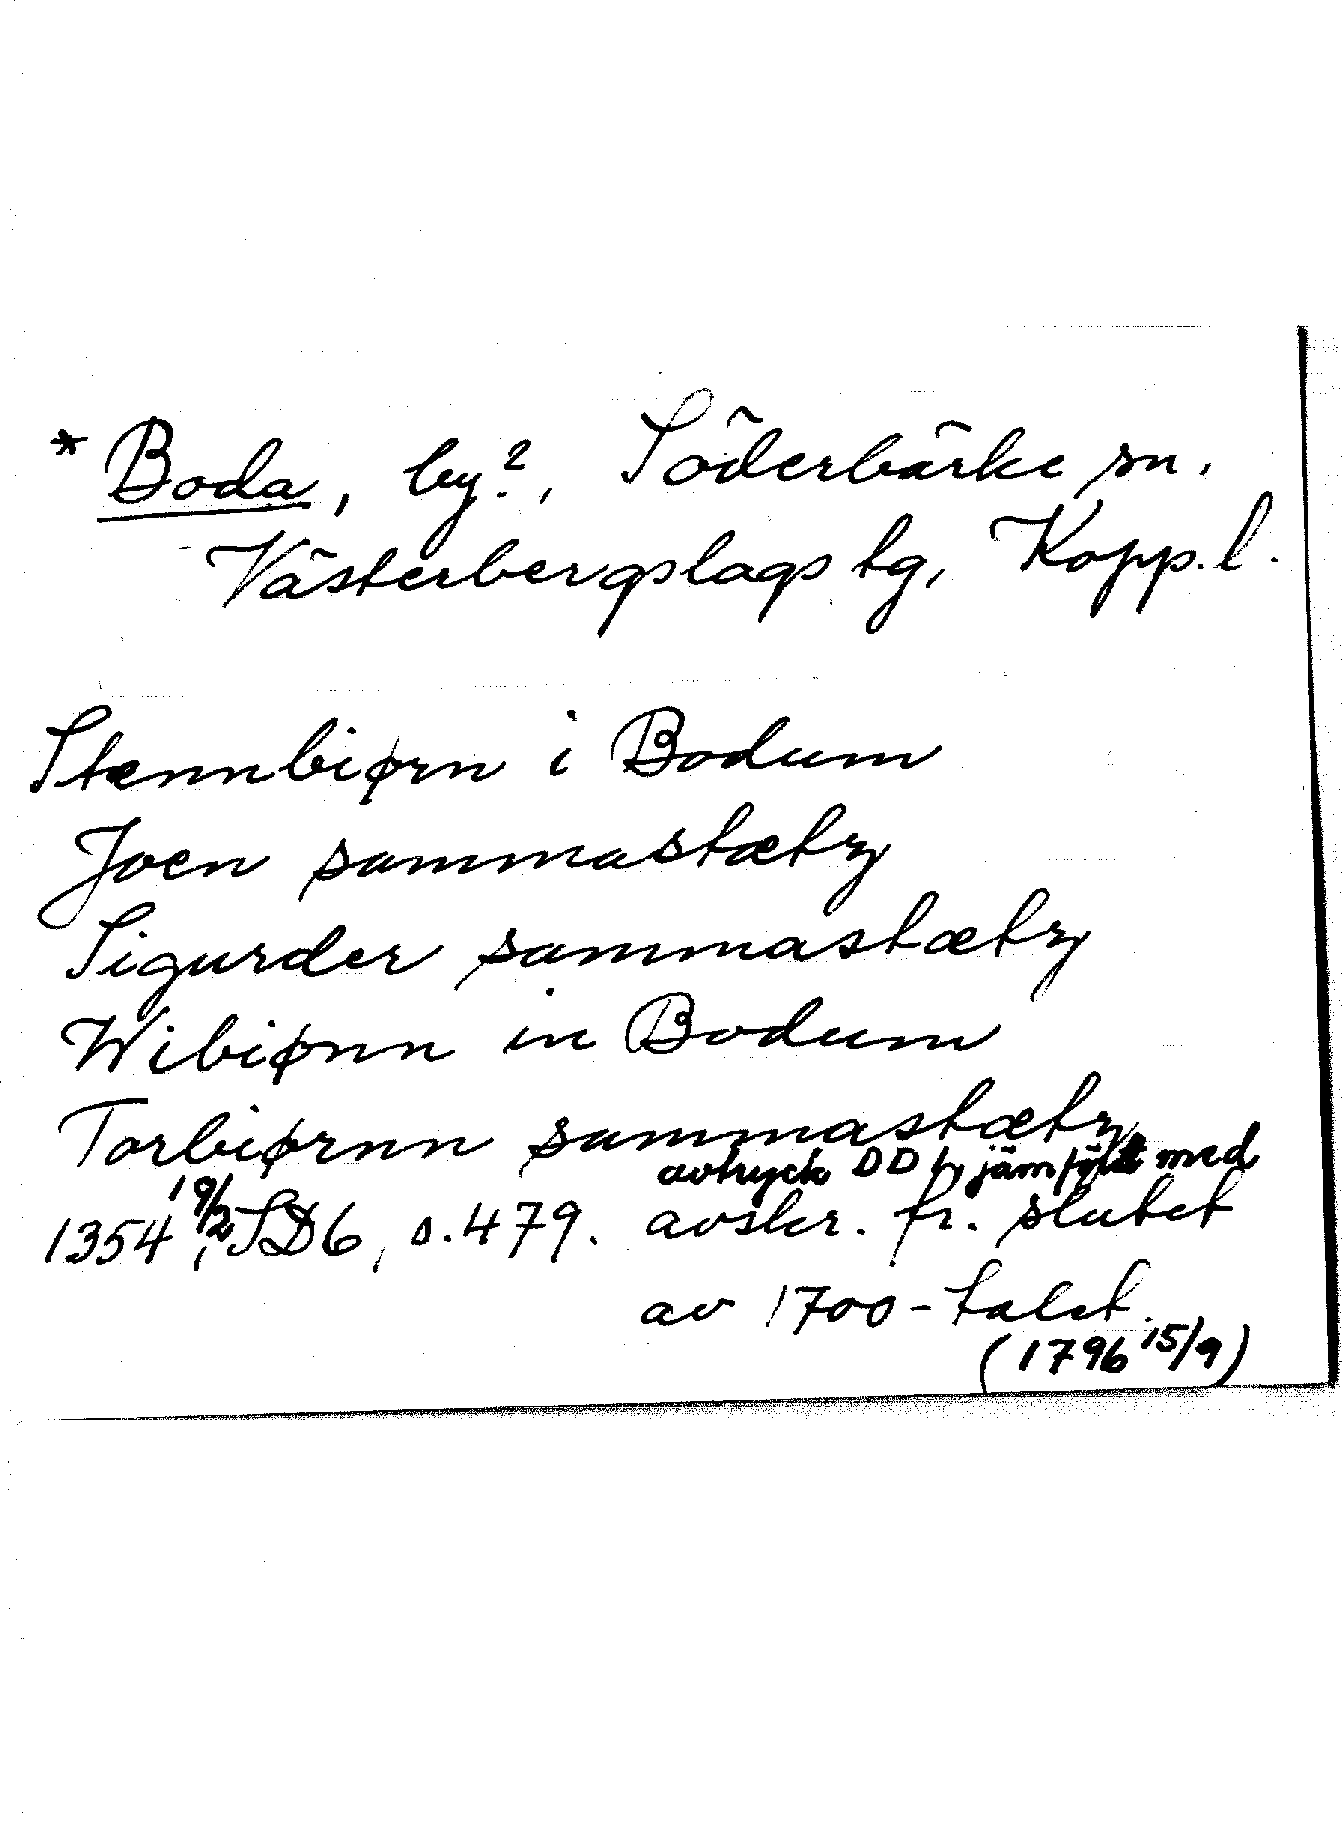 *Boda, by?, Söderbärke sn.
Västerbergslags tg, Kopp. l.
Stennbiørn i Bodum
Joen sammastætz
Sigurder sammastætz
Wibiønn in Bodum
Torbiørnn sammastætz
avtryck DD 1, jämfört med
1354 19/2, SD6, s. 479. avskr. fr. slutet
av 1700-talet.
(1796 15/9)